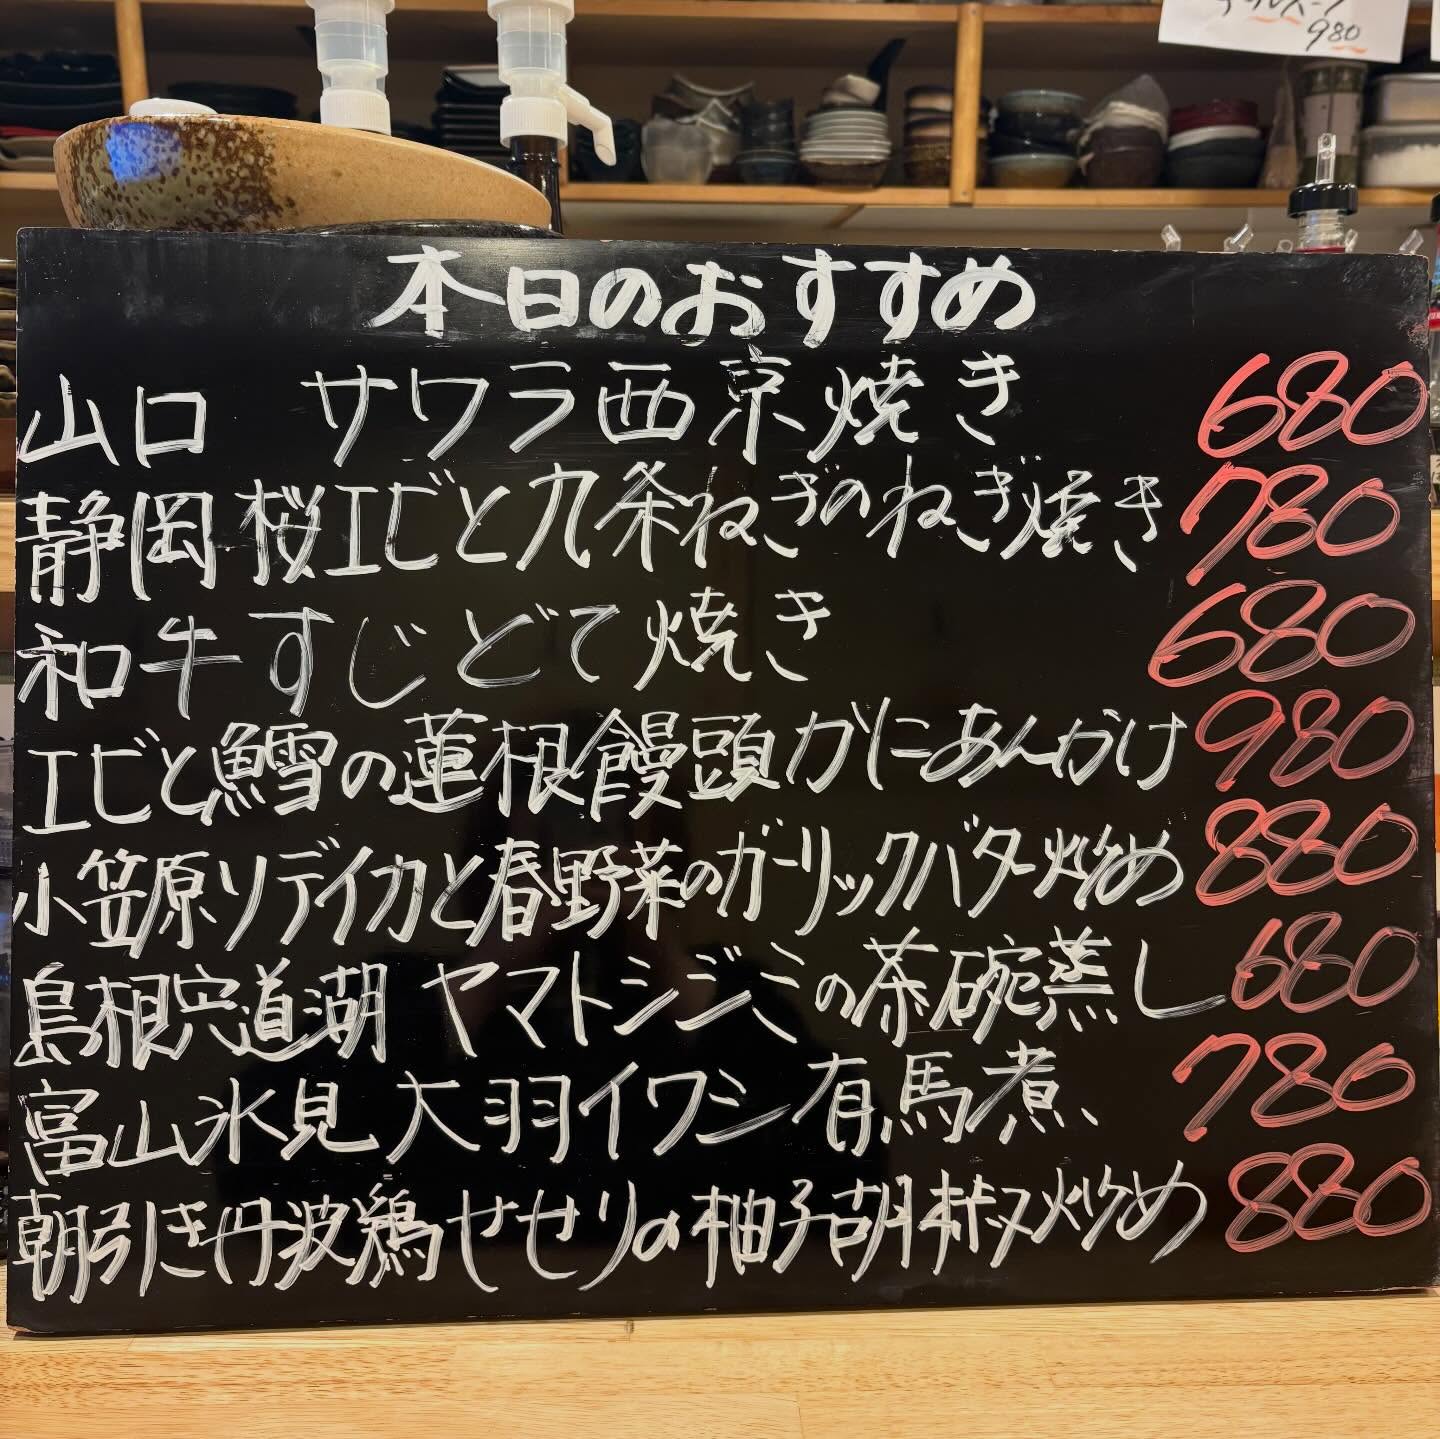 980
本日のおすすめ
山口 サワラ西京焼き 680
静岡 桜エビと九条ねぎのねぎ焼き 780
和牛すじどて焼き 680
エビと鱈の蓮根饅頭かにあんかけ 980
小笠原ソデイカと春野菜のガーリックバター炒め 880
島根宍道湖 ヤマトシジミの茶碗蒸し 680
富山氷見 大羽イワシ有馬煮 780
朝引き丹波鶏せせりの柚子胡椒炒め 880